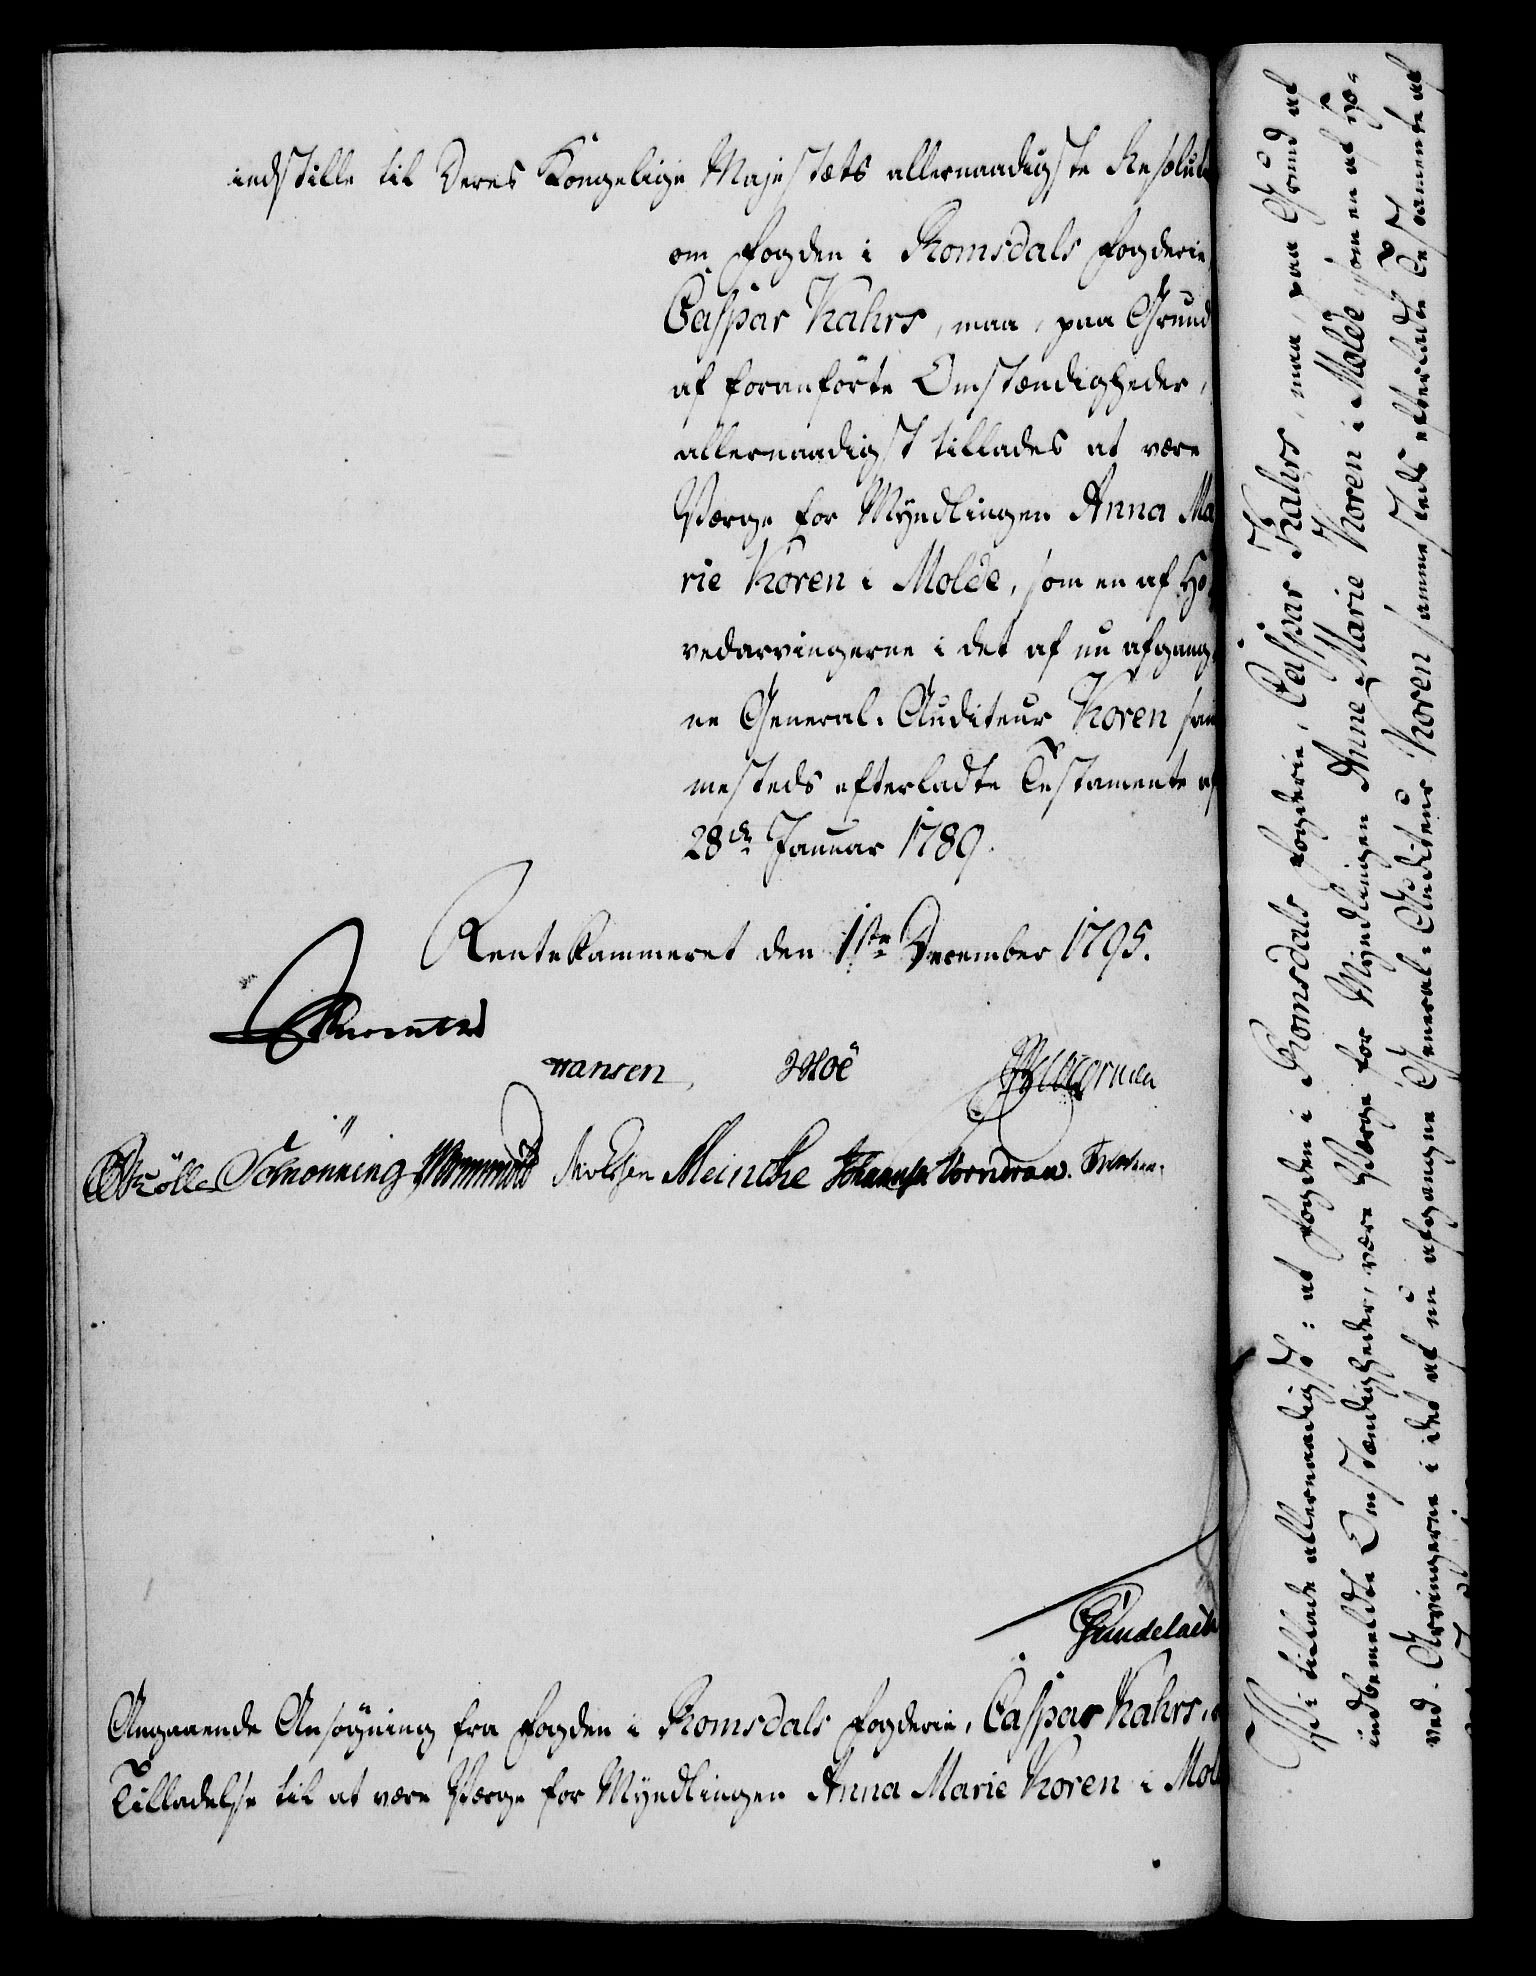 indstille til Deres Kongelige Majestæts allernaadigste Resolut
om Fogden i Romsdals Fogderie,
Caspar Kahrs, maa, paa Grund
af foranførte Omstændigheder,
allernaadigst tillades at være
Værge for Myndlingen Anna Ma
rie Koren i Molde, som en af Ho
vedarvingerne i det af nu afgang
ne General-Auditeur Koren sam
mesteds efterladte Testamente af
28de Januar 1789.
Rentekammeret den 1ste December 1795.
Hansen, Moë
Schönning Meincke Johannsen Vorndran.
Gundelach
Angaaende Ansøgning fra Fogden i Romsdals Fogderie, Caspar Kahrs,
Tilladelse til at være Værge for Myndlingen Anna Marie Koren i Mol
Vi tillade allernaadigst: at Fogden i Romsdals Fogderie, Caspar Kahrs, maa, paa Grund af
indbemeldte Omstændigheder, være Værge for Myndlingen Anne Marie Koren i Molde, som en af Ho-
ved-Arvingerne i det af nu afgangne General-Auditeur Koren sammesteds efterladte Testamente af